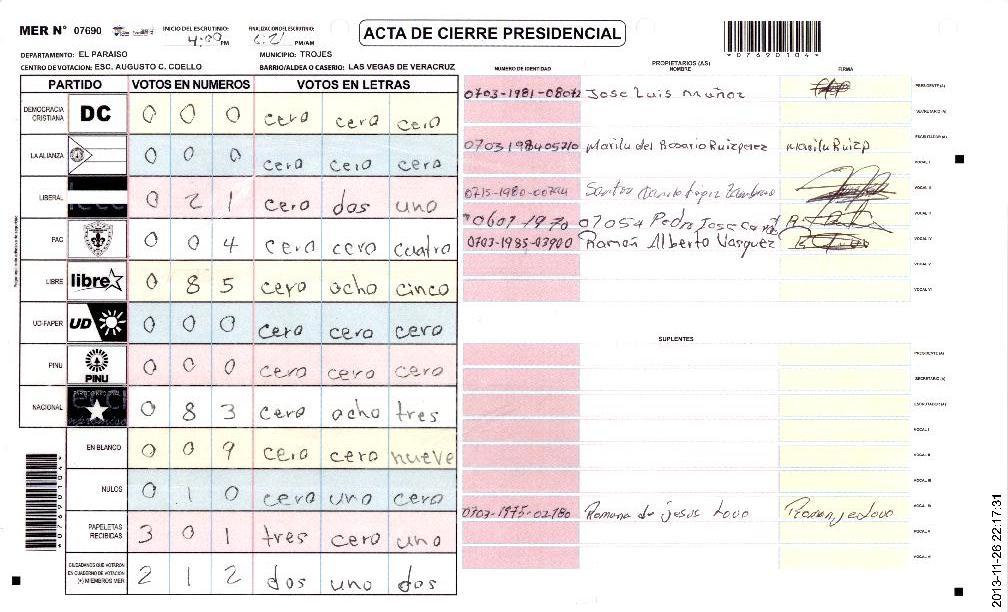 MER N° 07690
INICIO DEL ESCRUTINIO: 4:00 PM
FINALIZACION DEL ESCRUTINIO: 6:21 PM/AM
ACTA DE CIERRE PRESIDENCIAL
*07690104*
DEPARTAMENTO: EL PARAISO
MUNICIPIO: TROJES
CENTRO DE VOTACION: ESC. AUGUSTO C. COELLO
BARRIO/ALDEA O CASERIO: LAS VEGAS DE VERACRUZ
PARTIDO VOTOS EN NUMEROS VOTOS EN LETRAS
DEMOCRACIA CRISTIANA DC 0 0 0 cero cero cero
LA ALIANZA 0 0 0 cero cero cero
LIBERAL 0 2 1 cero dos uno
PAC 0 0 4 cero cero cuatro
LIBRE libre 0 8 5 cero ocho cinco
UD-FAPER UD 0 0 0 cero cero cero
PINU PINU 0 0 0 cero cero cero
NACIONAL 0 8 3 cero ocho tres
EN BLANCO 0 0 9 cero cero nueve
NULOS 0 1 0 cero uno cero
PAPELETAS RECIBIDAS 3 0 1 tres cero uno
CIUDADANOS QUE VOTARON EN CUADERNO DE VOTACION (+) MIEMBROS MER 2 1 2 dos uno dos
*07690104*
PROPIETARIOS (AS)
NUMERO DE IDENTIDAD NOMBRE FIRMA
0703-1981-08072 Jose Luis muñoz PRESIDENTE(A)
SECRETARIO (A)
0703198405210 Marilu del Rosario Ruiz perez Marilu Ruiz p ESCRUTADOR (A)
VOCAL I
0715-1980-00744 VOCAL II
0607-1970 07054 Pedro Jose VOCAL III
0703-1985-03900 Ramon Alberto Vasquez VOCAL IV
VOCAL V
VOCAL VI
SUPLENTES
PRESIDENTE (A)
SECRETARIO (A)
ESCRUTADOR (A)
VOCAL I
VOCAL II
VOCAL III
0703-1975-02780 Romana de jesus Lovo VOCAL IV
VOCAL V
VOCAL VI
2013-11-26 22:17:31